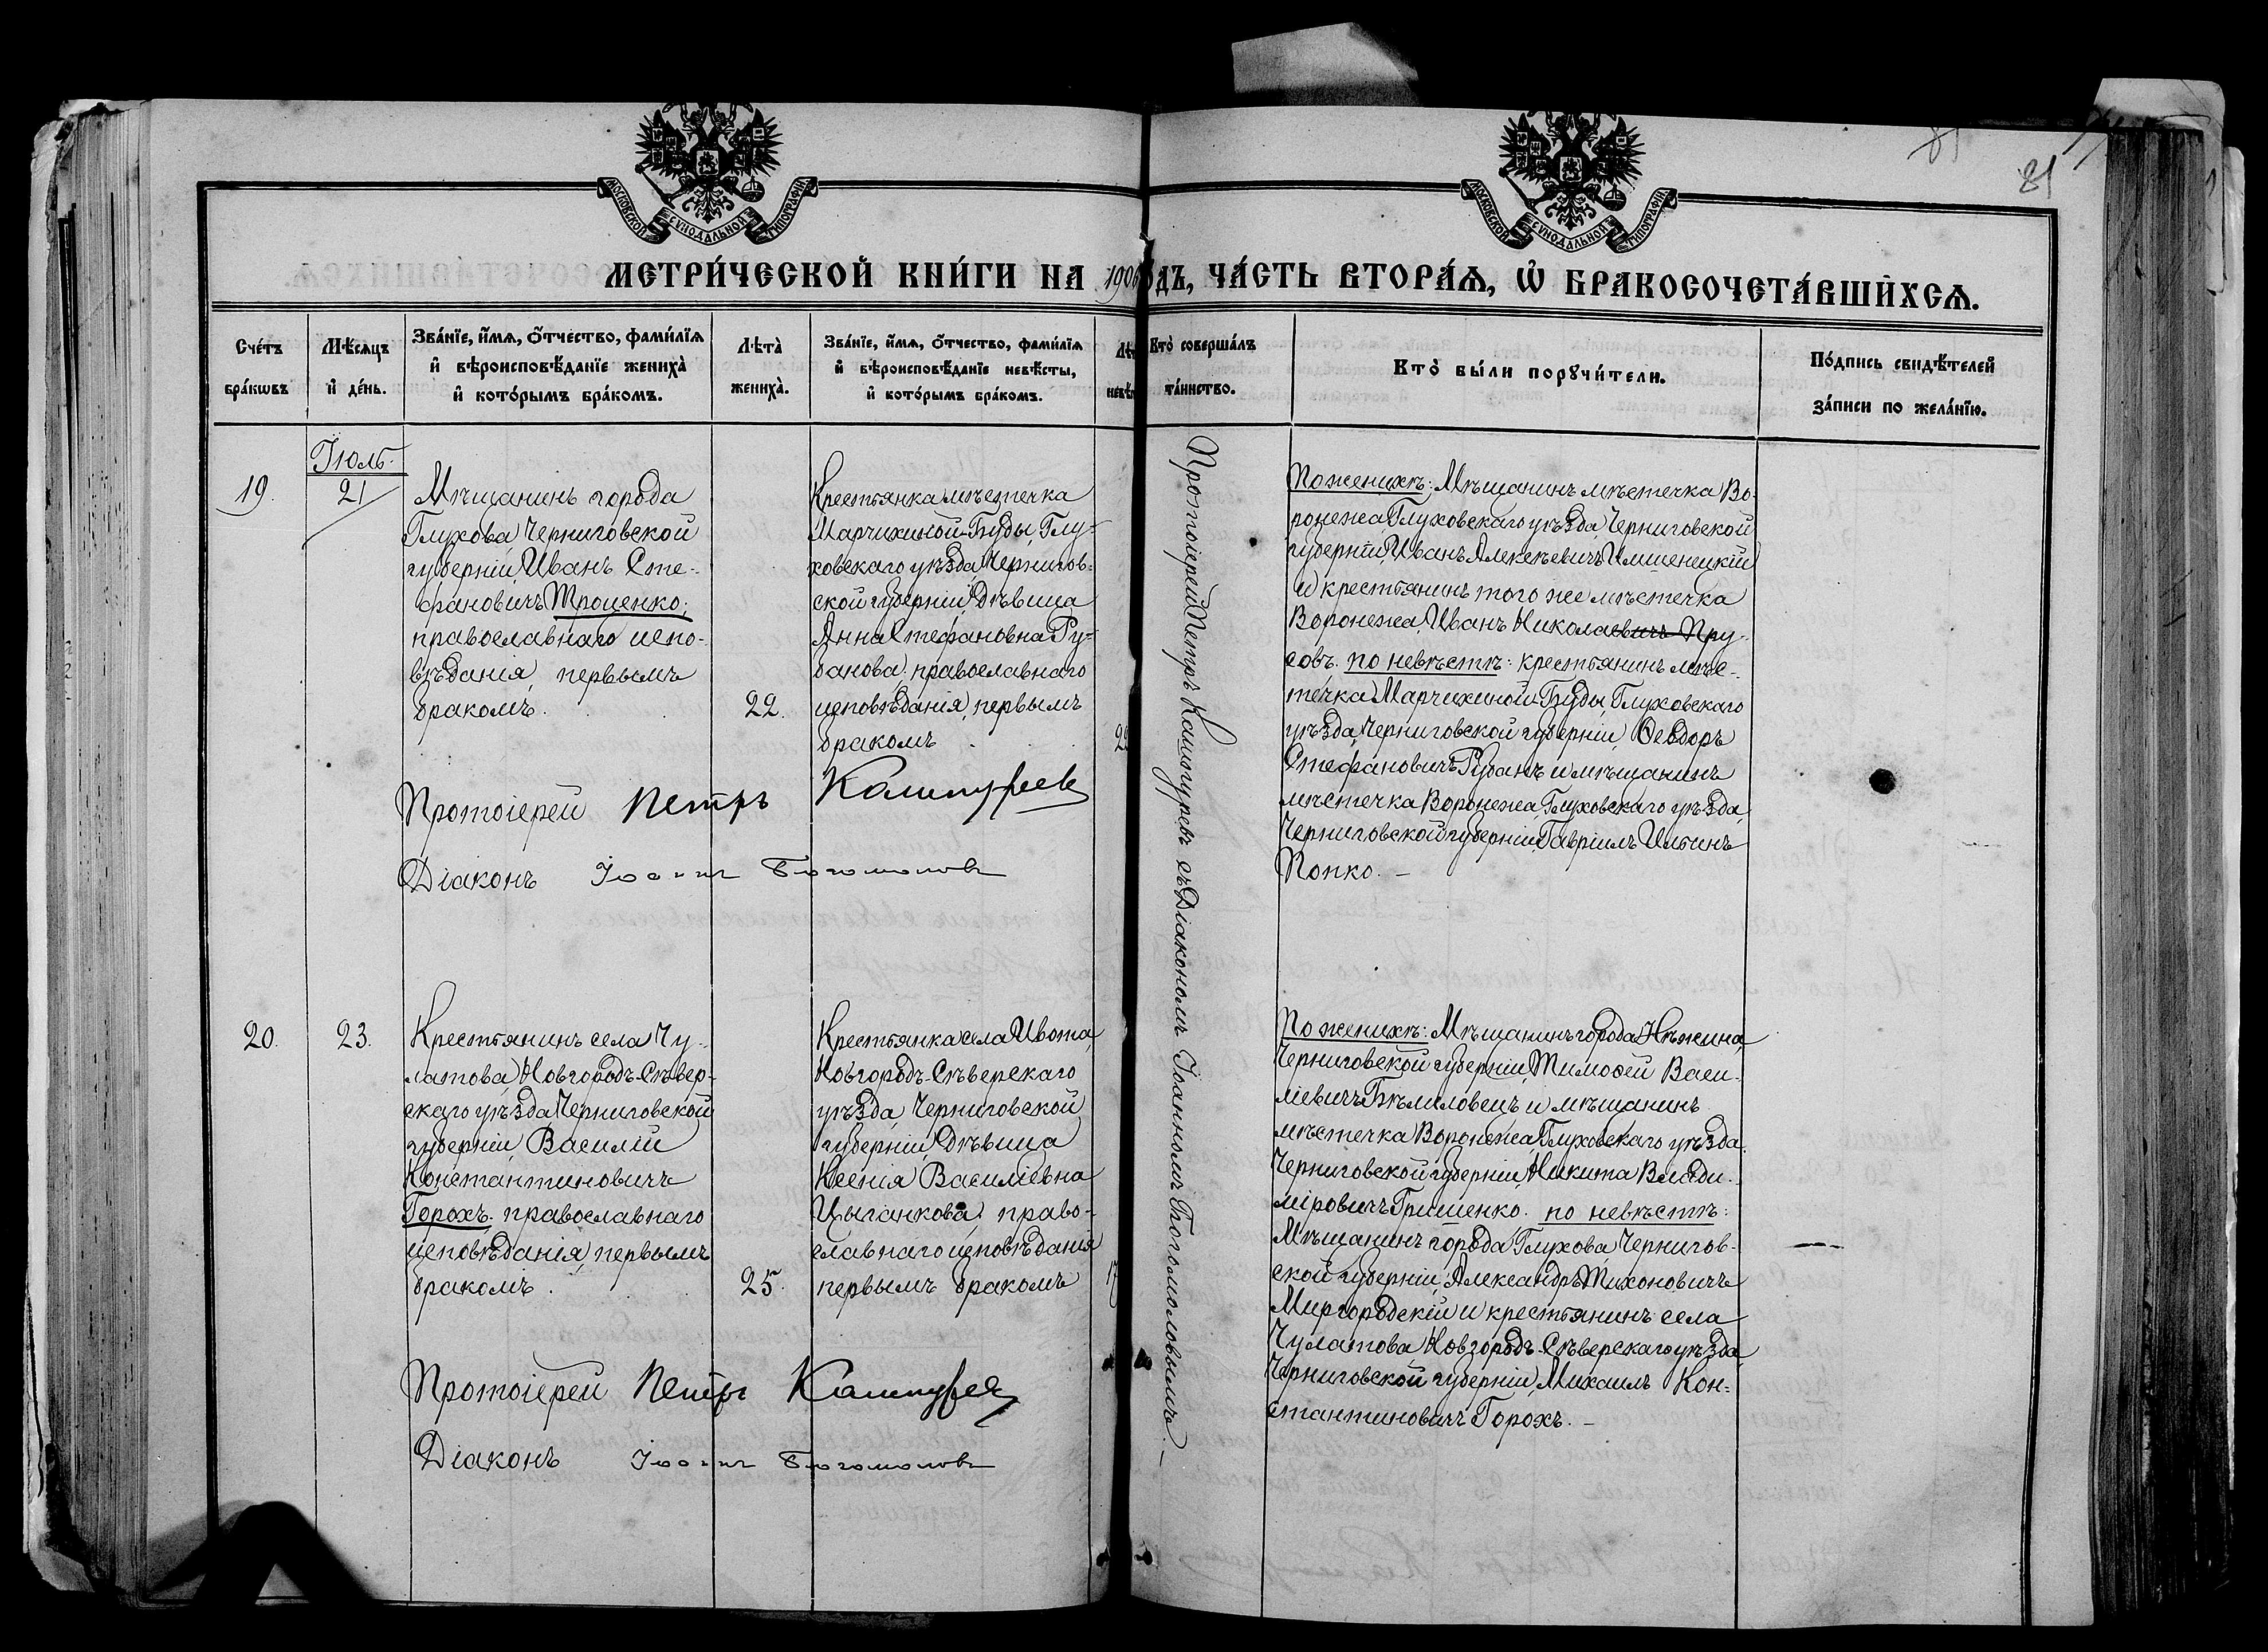 81
81
МОСКОВСКОЙ СѴНОДАЛЬНОЙ ТИПОГРАФІИ
МОСКОВСКОЙ СѴНОДАЛЬНОЙ ТИПОГРАФІИ
МЕТРИ́ЧЕСКОЙ КНИ́ГИ НА 1906 ОДЪ, ЧА́СТЬ ВТОРА́Ѧ, Ѽ БРАКОСОЧЕТА́ВШИХСѦ.
Сче́тъ
бра́кѡвъ
Мѣ́сѧцъ
и҆ де́нь.
Зва́нїе, и҆́мѧ, ѻ҆́тчество, фами́лїѧ
и҆ вѣроисповѣ́данїе жениха̀
и҆ кото́рымъ бра́комъ.
Лѣта̀
жениха̀.
Зва́нїе, и҆́мѧ, ѻ҆́тчество, фами́лїѧ
и҆ вѣроисповѣ́данїе невѣ́сты,
и҆ кото́рымъ бра́комъ.
Лѣт
невѣ
Кто̀ соверша́лъ
та́инство.
Кто̀ бы́ли порꙋчи́тели.
По́дпись свидѣ́телей
за́писи по жела́нїю.
19.
Іюль.
21
Мѣщанинъ города
Глухова Черниговской
губерніи, Иванъ Сте-
фановичъ Троценко;
православнаго испо-
вѣданія, первымъ
бракомъ.
22.
Крестьянка мѣстечка
Марчихиной-Буды, Глу-
ховскаго уѣзда, Чернигов-
ской губерніи, дѣвица
Анна Стефановна Ру-
банова; православнаго
исповѣданія, первымъ
бракомъ
22
Протоіерей Петръ Кашпуревъ
Діаконъ Іоаннъ Богомоловъ
Протоіерей Петръ Кашпуревъ съ Діакономъ Іоанномъ Богомоловымъ.
По женихѣ: Мѣщанинъ мѣстечка Во-
ронежа, Глуховскаго уѣзда, Черниговской
губерніи, Иванъ Алексѣевичъ Имшенецкій
и крестьянинъ того же мѣстечка
Воронежа, Иванъ Николаевичъ Пру-
совъ. по невѣстѣ: крестьянинъ мѣс-
течка Марчихиной-Буды, Глуховскаго
уѣзда, Черниговской губерніи, Ѳеодоръ
Стефановичъ Рубанъ и мѣщанинъ
мѣстечка Воронежа, Глуховскаго уѣзда,
Черниговской губерніи, Гавріилъ Ильинъ
Попко.
20.
23.
Крестьянинъ села Чу-
латова, Новгородъ-Сѣвер-
скаго уѣзда, Черниговской
губерніи, Василій
Константиновичъ
Горохъ. православнаго
исповѣданія, первымъ
бракомъ.
25.
Крестьянка села Ивота,
Новгородъ-Сѣверскаго
уѣзда, Черниговской
губерніи, дѣвица
Ксенія Василіевна
Цыганкова; право-
славнаго исповѣданія
первымъ бракомъ
17
Протоіерей Петръ Кашпуревъ
Діаконъ Іоаннъ Богомоловъ
По женихѣ: Мѣщанинъ города Нѣжина,
Черниговской губерніи, Тимоѳей Васи-
ліевичъ Бѣмиловецъ и мѣщанинъ
мѣстечка Воронежа, Глуховскаго уѣзда
Черниговской губерніи, Никита Влади-
міровичъ Гришенко. по невѣстѣ:
Мѣщанинъ города Глухова Чернигов-
ской губерніи, Александръ Тихоновичъ
Миргородскій и крестьянинъ села
Чулатова Новгородъ-Сѣверскаго уѣзда
Черниговской губерніи, Михаилъ Кон-
стантиновичъ Горохъ.